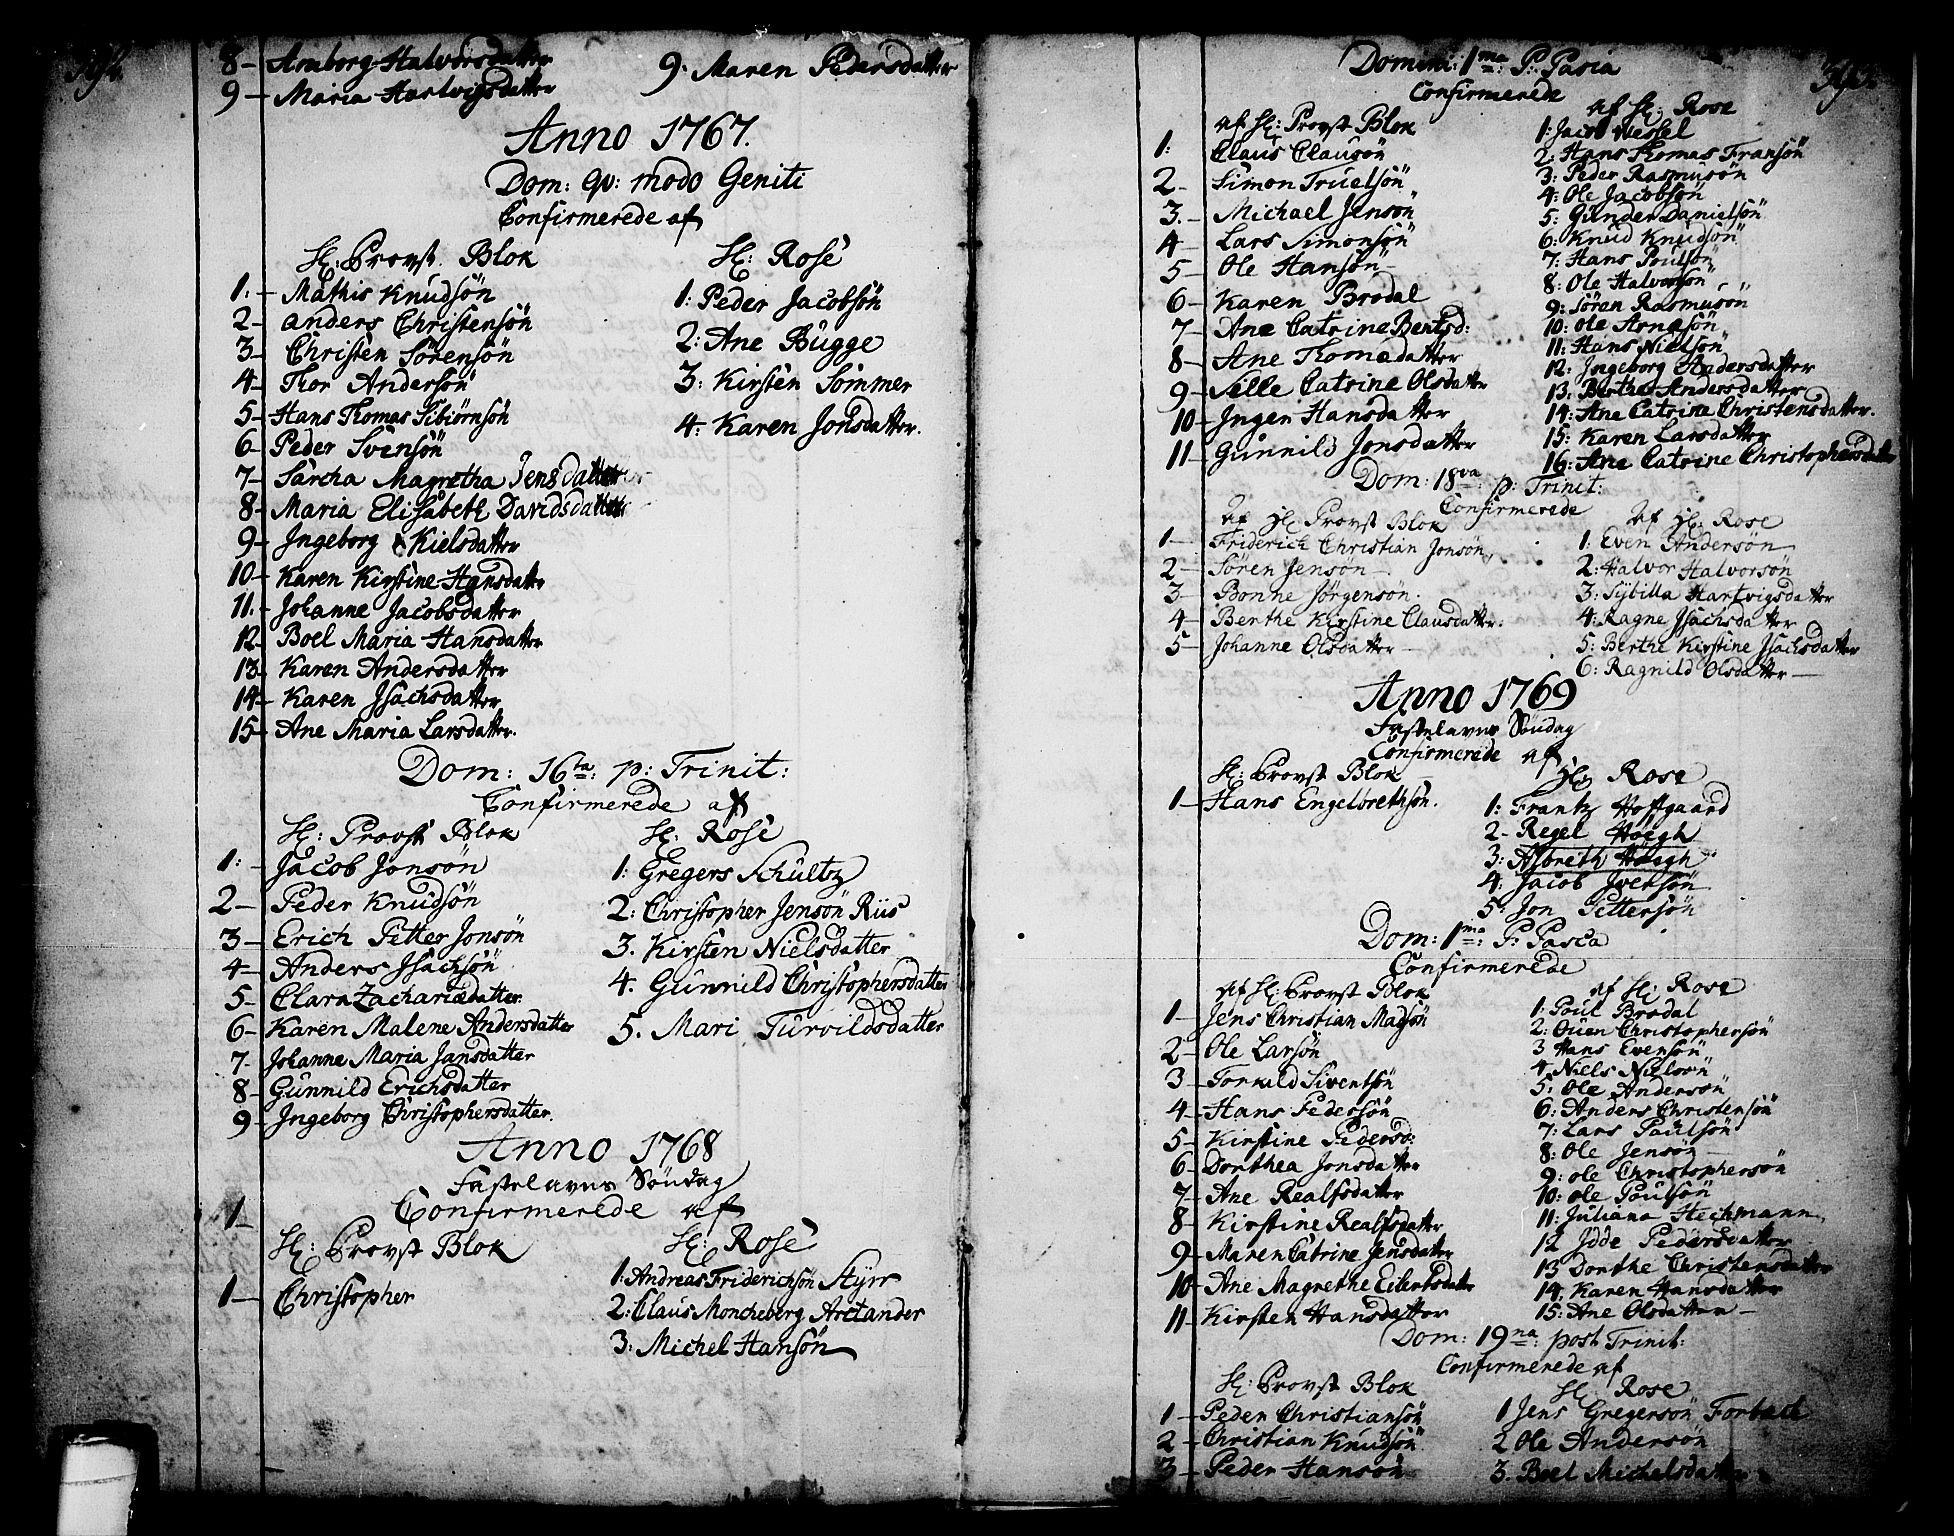 8 - Arnborg Halvorsdatter
9 - Maria Hartvigsdatter
9. Maren Pedersdatter
Anno 1767.
Dom: qv: modo Geniti
Confirmerede af
H: Provst Blok
1. - Mathis Knudsön
2 - Anders Christensön
3 - Christen Sörensön
4 - Thor Andersön
5 - Hans Thomas Sibiörnsön
6 - Peder Svensön
7 - Sarcha Magretha Jensdatter
8 - Maria Elisabeth Davidsdatter
9 - Ingeborg Kielsdatter
10 - Karen Kirstine Hansdatter
11. - Johanne Jacobsdatter
12 - Boel Maria Hansdatter
13 - Karen Andersdatter
14 - Karen Isachsdatter
15 - Ane Maria Larsdatter.
H: Rose
1: Peder Jacobsön
2: Ane Bügge
3: Kirsten Sommer
4: Karen Jonsdatter.
Dom: 16ta: p: Trinit:
Confirmerede af
H: Provst Blok
1: - Jacob Jonsön
2 - Peder Knudsön
3 - Erich Petter Jonsön
4 - Anders Isachsön
5 - Clara Zachariædatter
6 - Karen Malene Andersdatter
7 - Johanne Maria Jansdatter
8 - Günnild Erichsdatter
9 - Ingeborg Christophersdatter
H: Rose
1: Gregers Schültz
2: Christopher Jensön Riis
3. Kirsten Nielsdatter
4. Günnild Christophersdatter
5. Mari Turvildsdatter
Anno 1768
Fastelavns Söndag
1 -
Confirmerede af
H: Provst Blok
1 - Christopher
H: Rose
1: Andreas Friderichsön Styrr
2: Claus Moncheberg Arctander
3: Michel Hansön
Domini: 1ma: P: Pasca
Confirmerede
af H: Provst Blok
1: Claus Clausön
2 - Simon Truelsön
3. - Michael Jensön
4 - Lars Simonsön
5 - Ole Hansön
6 - Karen Brodal
7 - Ane Catrine Bertsd:
8 - Ane Thomædatter
9 - Sille Catrine Olsdatter
10 - Ingen Hansdatter
11 - Günnild Jonsdatter
af H: Rose
1: Jacob Wessel
2: Hans Thomas Fransön
3: Peder Rasmusön
4: Ole Jacobsön
5: Günder Danielsön
6: Knud Knudsön
7: Hans Poulsön
8: Ole Halvorsön
9: Sören Rasmusön
10: Ole Arnesön
11: Hans Nielsön
12: Ingeborg Andersdatter
13. Berthe Andersdatter
14: Ane Catrine Christensdatter.
15: Karen Larsdatter
16: Ane Catrine Christophersdatter
Dom: 18va: p: Trinit:
Confirmerede
af H: Provst Blok
1 - Friderich Christian Jonsön
2 - Sören Jensön
3 - Bonne Jörgensön.
4 - Berthe Kirstine Clausdatter.
5 - Johanne Olsdatter
af H: Rose
1: Even Andersön
2: Halvor Halvorsön
3: Sybilla Hartvigsdatter
4: Ragne Isachsdatter
5: Berthe Kirstine Isachsdatter
6: Ragnild Olsdatter
Anno 1769
Fastelavns Söndag
Confirmerede af
H: Provst Blok
1 - Hans Engelbrethsön.
H: Rose
1: Frantz Hoffgaard
2 - Regel Höegh
3: Albreth Höegh
4: Jacob Iversön
5: Jon Pettersön
Dom: 1ma: P: Pasca
Confirmerede
af H: Provst Blok
1 - Jens Christian Madsön
2 - Ole Larsön
3 - Torkild Siventsön
4 - Hans Pedersön
5 - Kirstine Pedersd:
6 - Dorthea Jonsdatter
7 - Ane Realfsdatter
8 - Kirstine Realfsdatter
9 - Maren Catrine Jensdatter
10 - Ane Magrethe Eilertsdatter
11 - Kirsten Hansdatter
af H: Rose
1: Poul Brodal
2: Ouen Christophersön
3 Hans Evensön
4 Niels Nielsön
5: Ole Andersön
6: Anders Christensön
7: Lars Paulsön
8: Ole Jensön
9: Ole Christophersön
10: Ole Poulsön
11: Juliana Stechmann
12 Idde Pedersdatter
13 Dorthe Christensdatter
14. Karen Hansdatter
15: Ane Olsdatter
Dom: 19na: post Trinit:
Confirmerede af
H: Provst Blok
1 - Peder Christiansön
2 - Christian Knudsön
3 - Peder Hansön
H: Rose
1 Jens Gregersön Forbech
2 Ole Andersön
3. Boel Michelsdatter